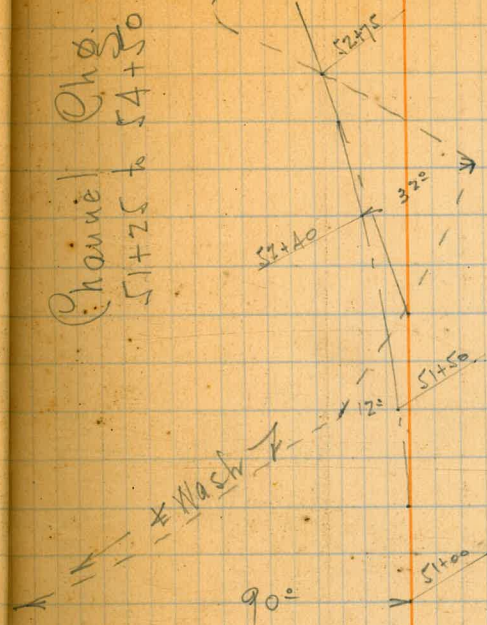 Channel Chg.
51+25 to 54+50
52+75
32°
52+40
51+50
12°
Wash
51+00
90°